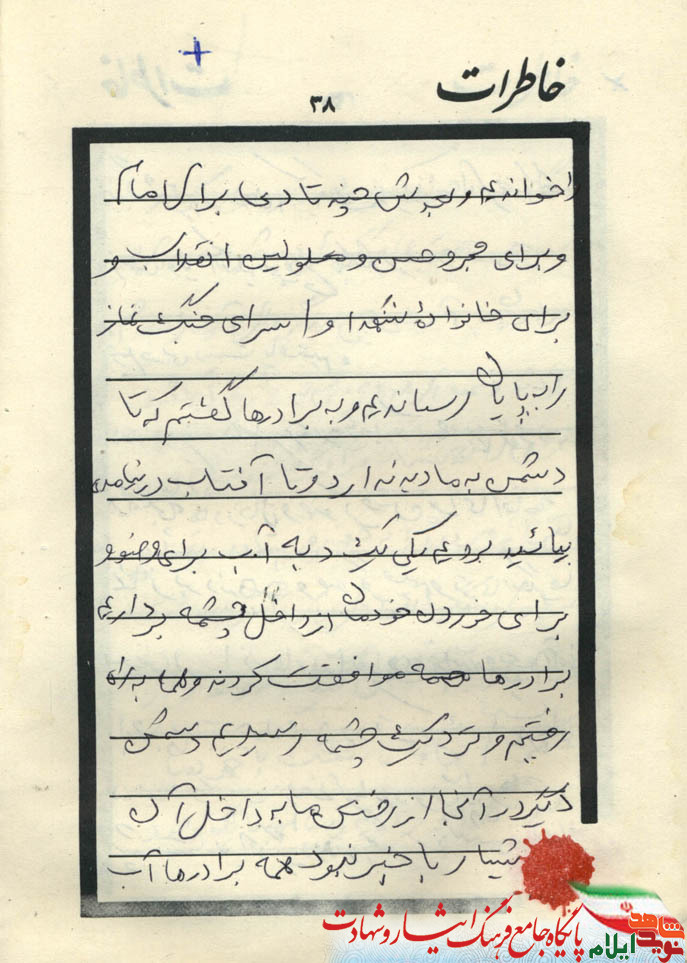 خاطرات
۳۸
را خواندیم و بعدش چند تا دعا برای امام
و برای مجروحین و معلولین انقلاب و
برای خانوادهٔ شهدا و اسرای جنگ نماز
را به پایان رساندیم و به برادرها گفتیم که تا
دشمن به ما دید نداره و تا آفتاب در نیامده
بیائید برویم یکی یک دبه آب برای وضو و
برای خوردن خودمان از داخل چشمه برداریم
برادرها همه موافقت کردند و همه به راه
رفتیم و نزدیک چشمه رسیدیم دشمن
دیگر در آنجا از رفتن ما به داخل آن
شیار با خبر نبود همه برادرها آب
پایگاه جامع فرهنگ ایثار و شهادت
نوید شاهد
ایلام